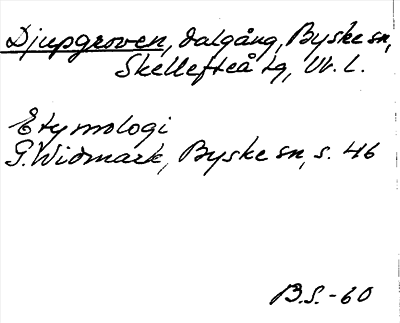 Djupgroven, dalgång, Byske sn,
Skellefteå tg, Vb. l.
Etymologi
G. Widmark, Byske sn, s. 46
B.S.-60